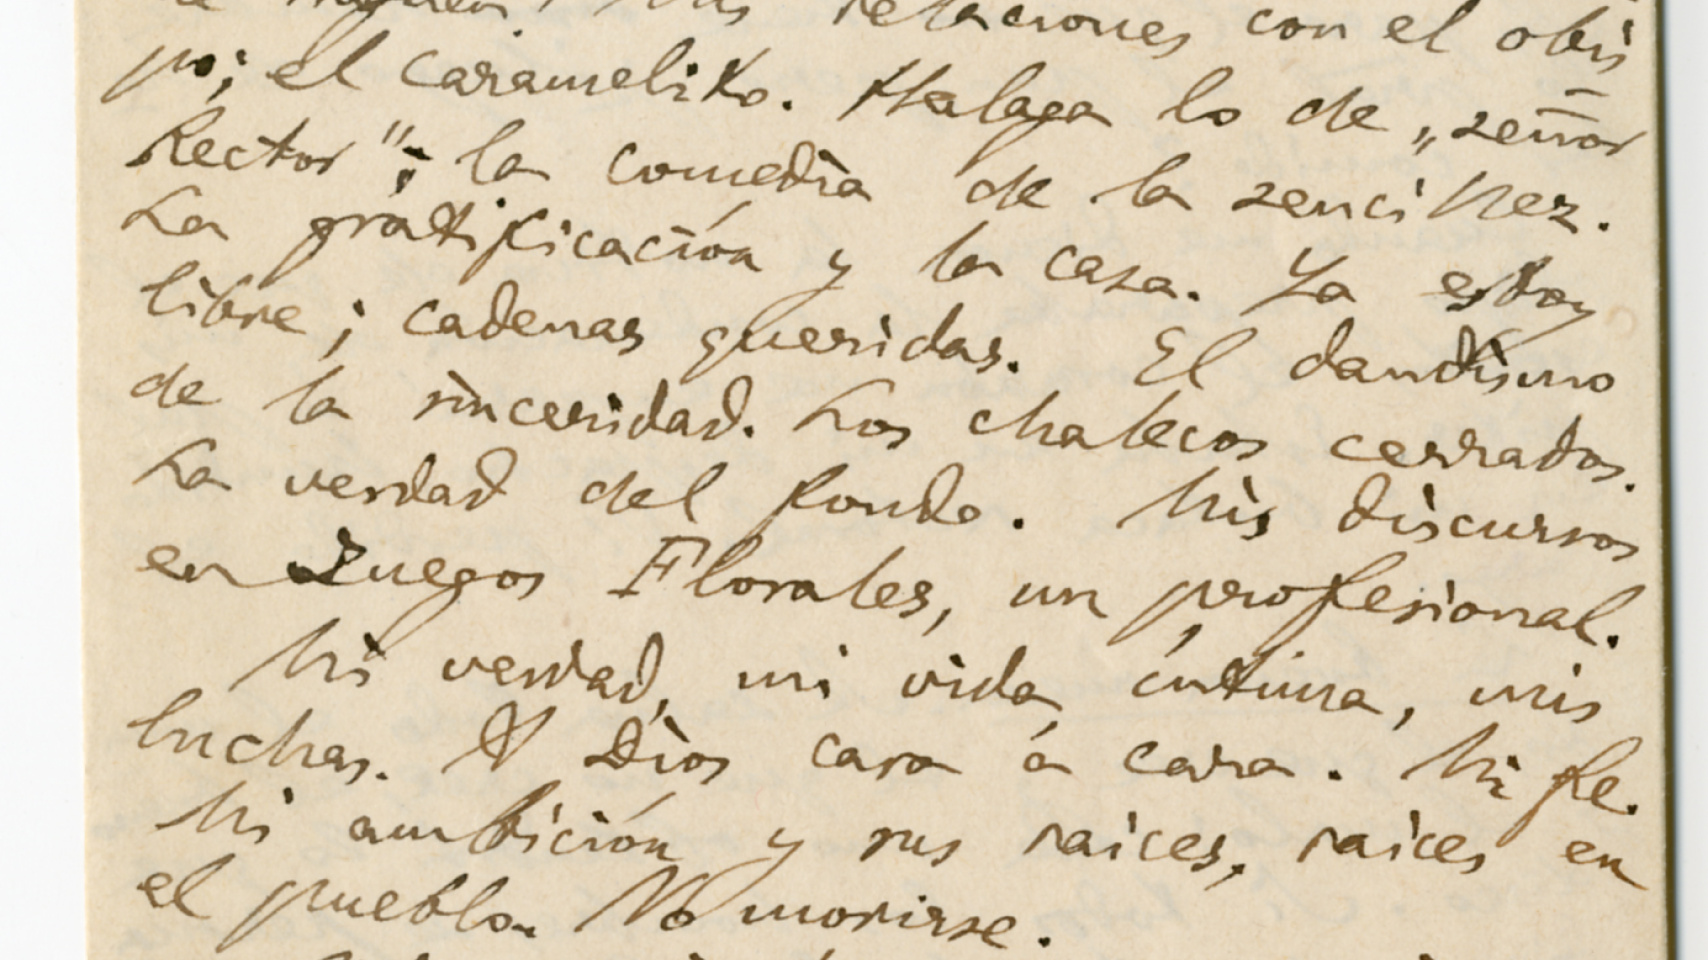 relaciones con el obis
po; el caramelito. Halaga lo de „señor
Rector"; la comedia de la sencillez.
La gratificación y la casa. Ya estoy
libre; cadenas queridas. El dandismo
de la sinceridad. Los chalecos cerrados.
La verdad del fondo. Mis discursos
en Juegos Florales, un profesional.
Mi verdad, mi vida íntima, mis
luchas. A Dios cara á cara. Mi fe.
Mi ambición y sus raices, raices en
el pueblo. No morirse.